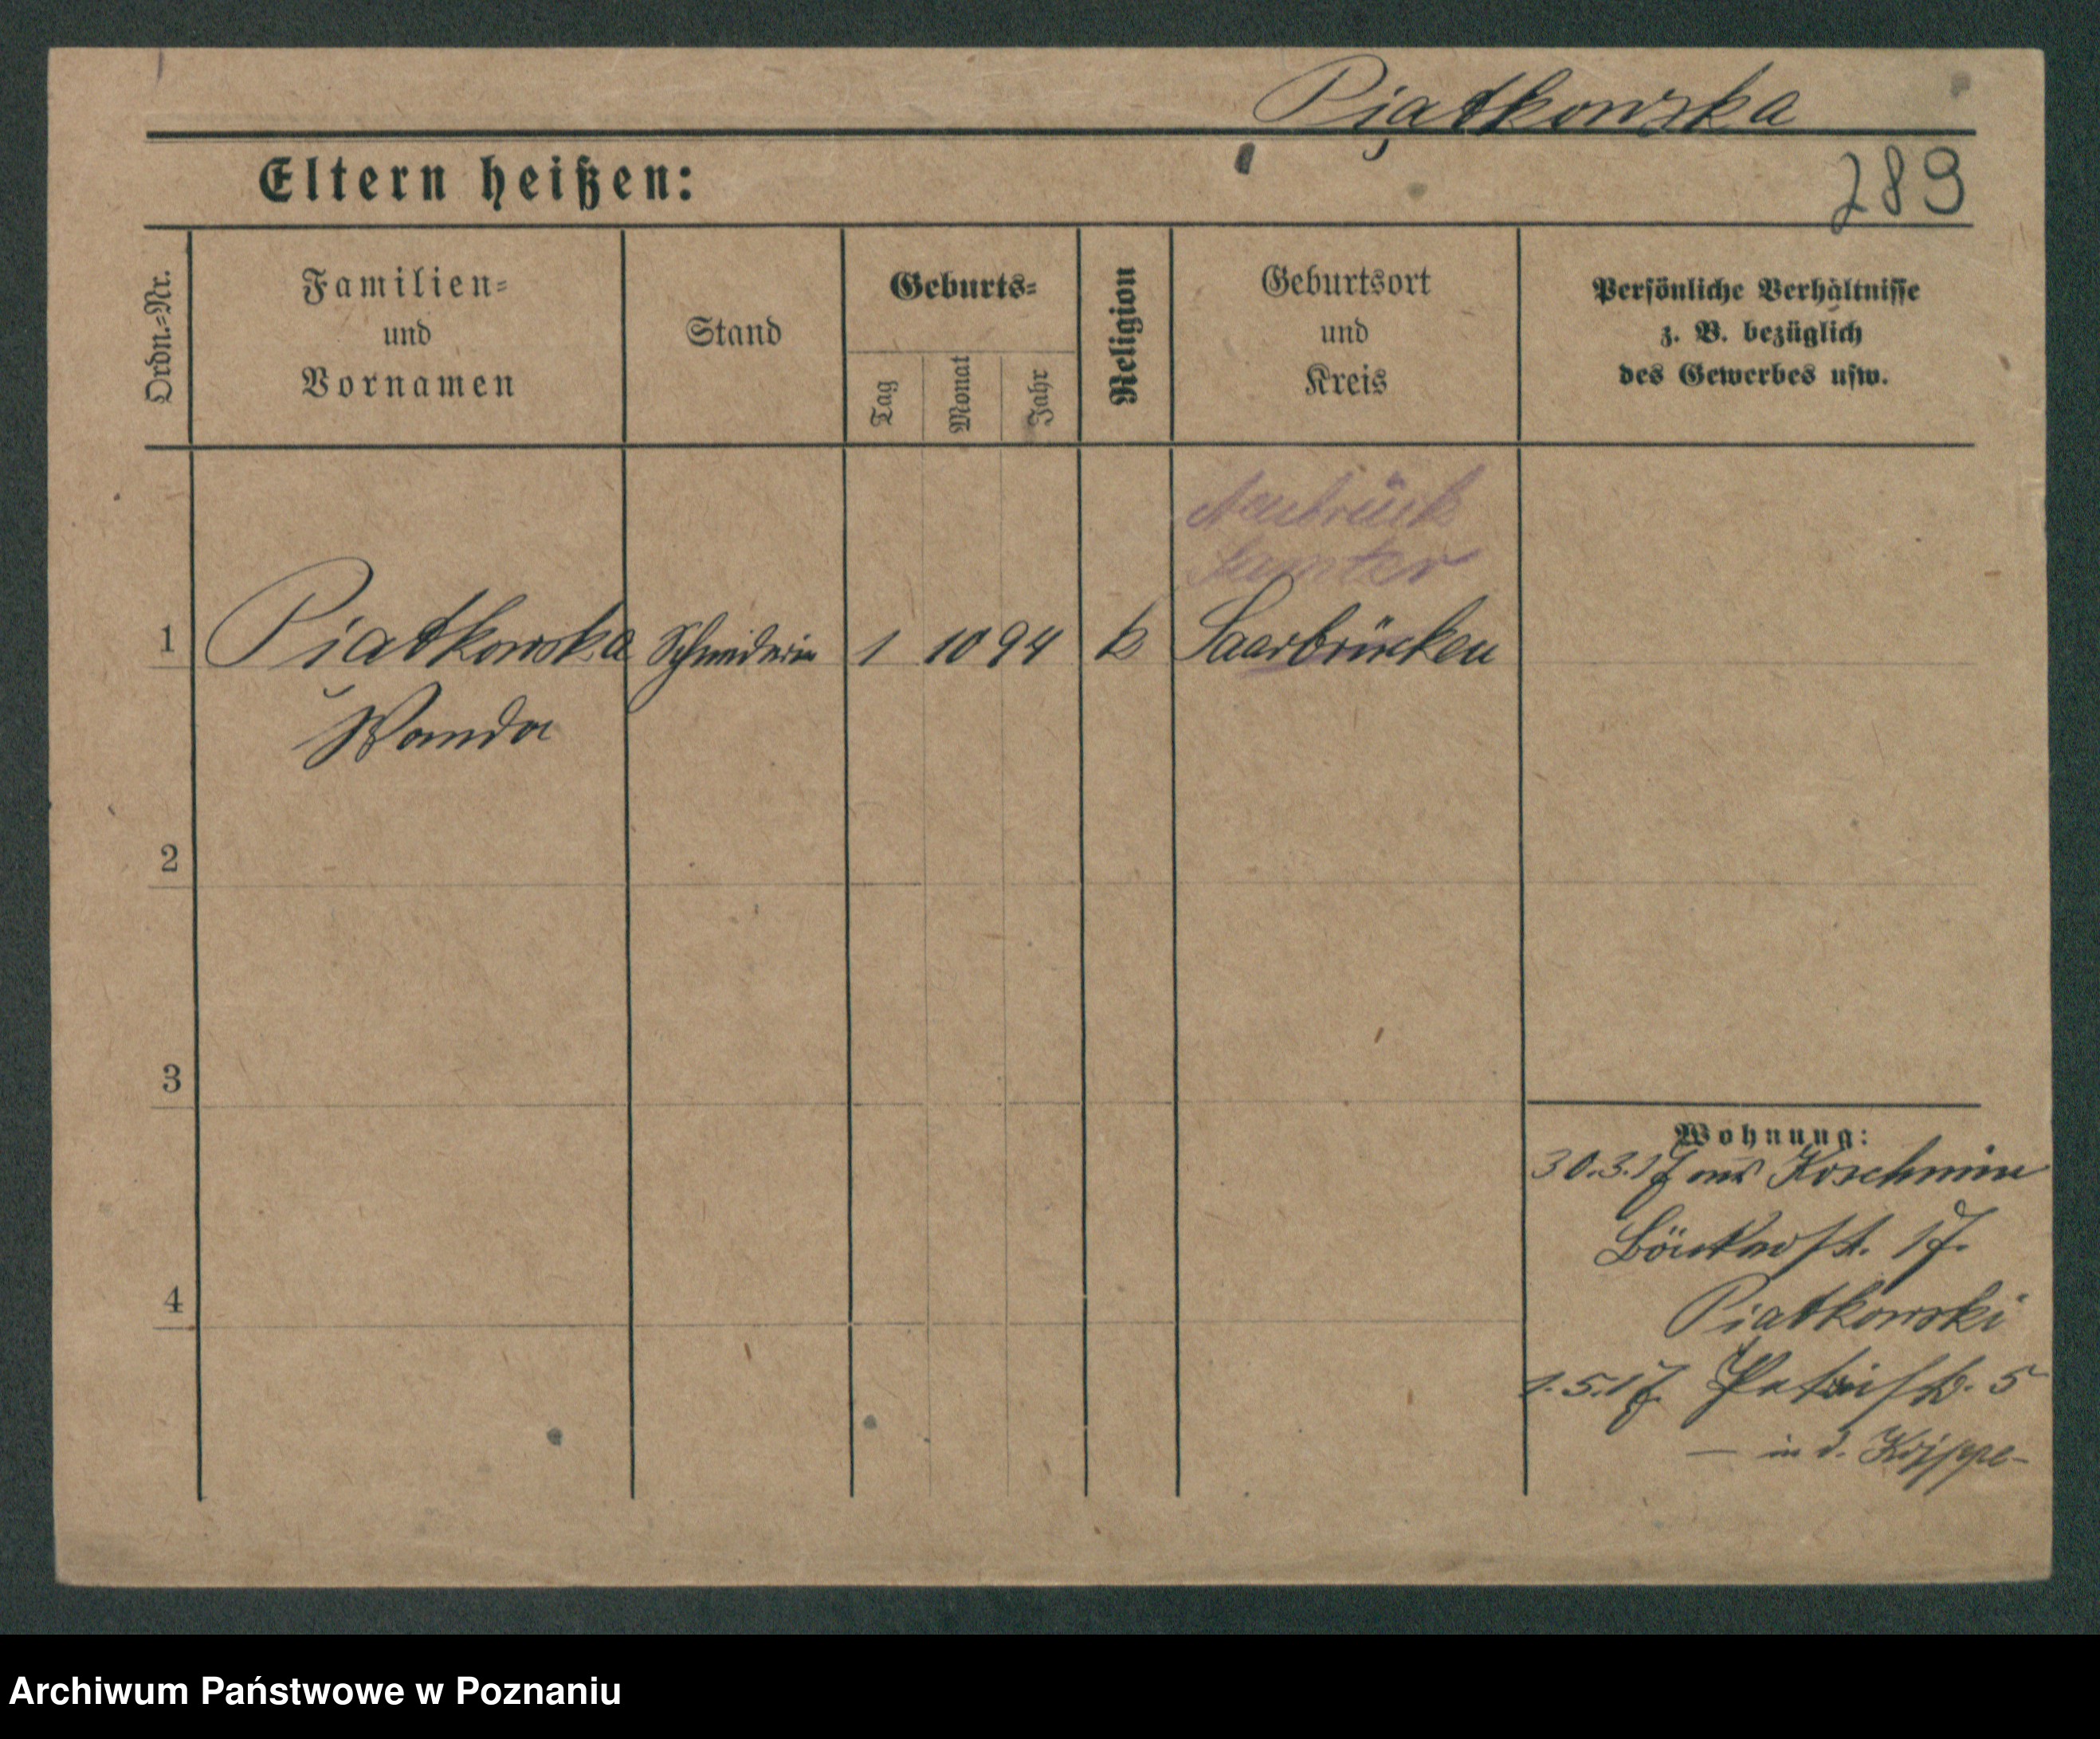 Piątkowska
Eltern heißen:
289
Ordn.-Nr.
Familien-
und
Vornamen
Stand
Geburts-
Tag
Monat
Jahr
Religion
Geburtsort
und
Kreis
Persönliche Verhältnisse
z. B. bezüglich
des Gewerbes usw.
Neubrück
Samter
1 Piątkowska Schneiderin 1 10 94 k Saarbrücken
Wanda
2
3
Wohnung:
30.3.17 aus Koschmin
17.
4
Piatkowski
1.5.17 Patristr. 5
— in d. Krippe -
Archiwum Państwowe w Poznaniu